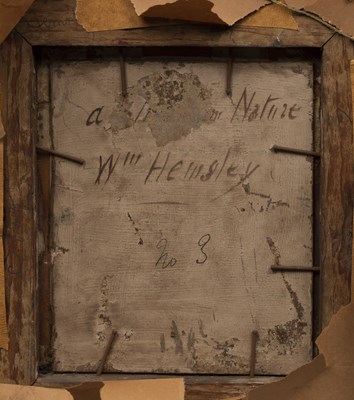 a Nature
Wm Hemsley
No 3